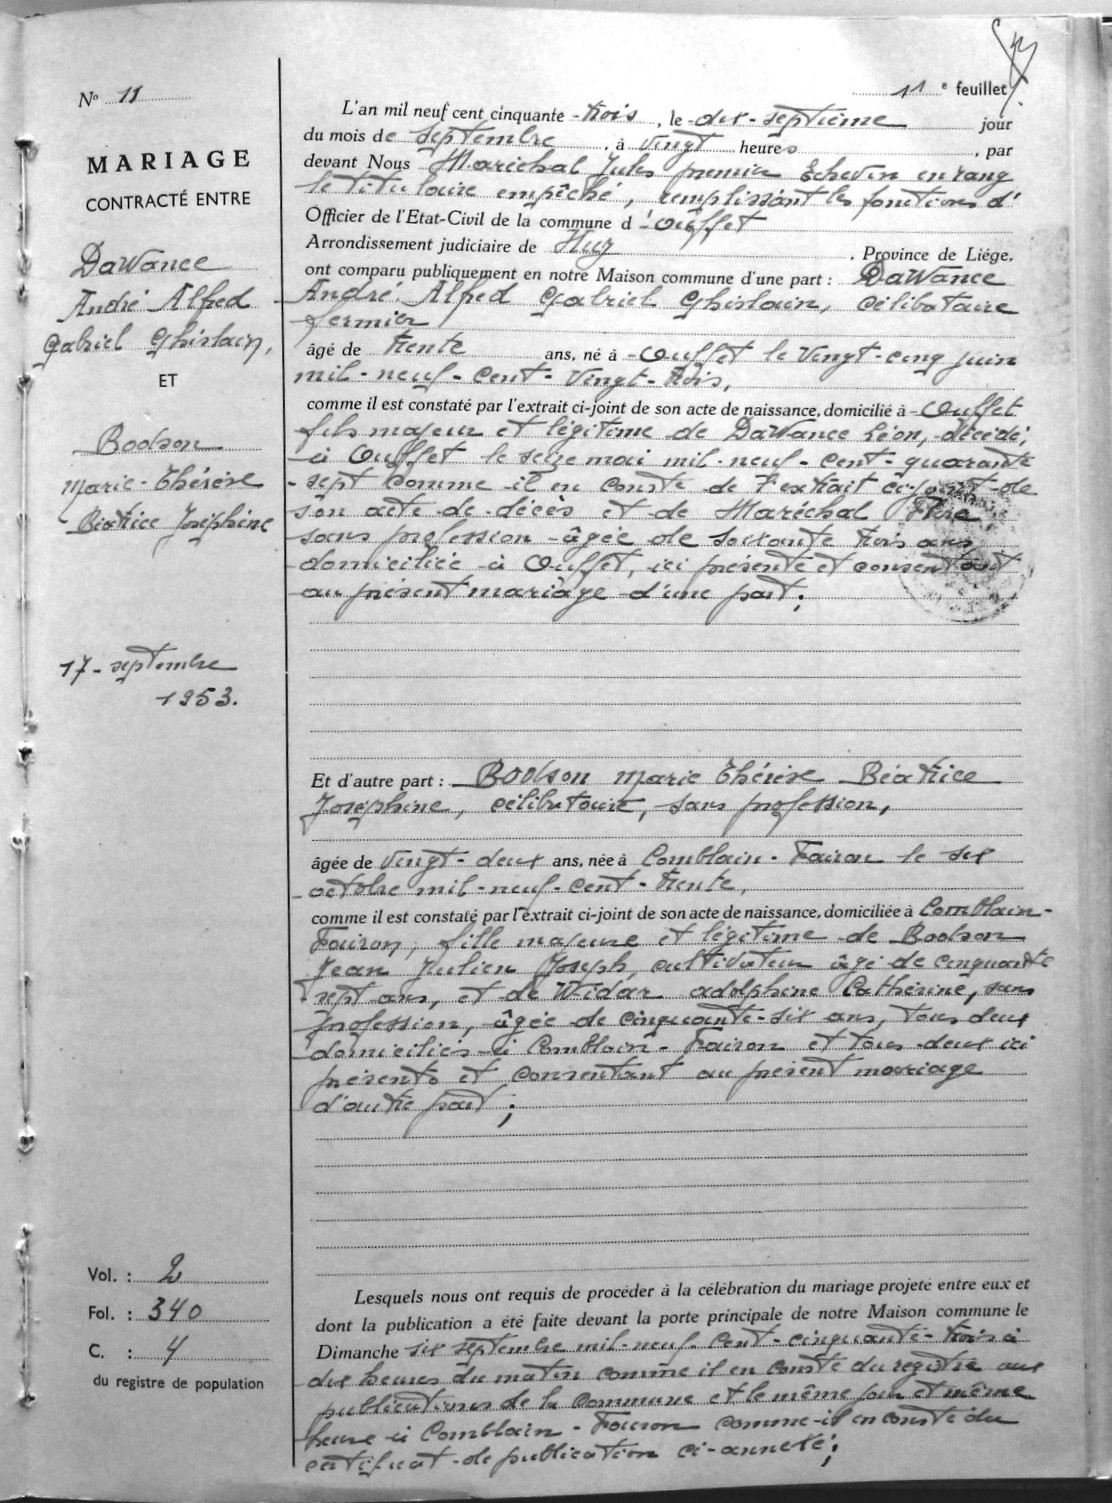 11e feuillet
N° 11
MARIAGE
CONTRACTÉ ENTRE
DaWance
André Alfred
Gabriel Ghislain,
ET
Bodson
Marie-Thérèse
Béatrice Joséphine
17 - septembre
1953.
Vol. : 2
Fol. : 340
C. : 4
du registre de population
L'an mil neuf cent cinquante -trois, le -dix-septième jour
du mois de septembre, à vingt heures, par
devant Nous Maréchal Jules premier Echevin en rang
le titulaire empêché, remplissant les fonctions d'
Officier de l'Etat-Civil de la commune d'Ouffet
Arrondissement judiciaire de Huy. Province de Liége.
ont comparu publiquement en notre Maison commune d'une part : DaWance
André. Alfred Gabriel Ghislain, célibataire
fermier
âgé de trente ans, né à -Ouffet le vingt-cinq juin
mil-neuf-cent-vingt-trois,
comme il est constaté par l'extrait ci-joint de son acte de naissance, domicilié à -Ouffet
fils majeur et légitime de DaWance Léon, décédé,
à Ouffet le seize mai mil-neuf-cent-quarante
-sept comme il en conste de l'extrait ci-joint de
son acte de décès et de Maréchal
sans profession âgée de soixante trois ans
domiciliée à Ouffet, ici présente et consentant
au présent mariage d'une part;
Et d'autre part : Bodson Marie Thérèse Béatrice
Joséphine, célibataire, sans profession,
âgée de vingt-deux ans, née à Comblain-Fairon le six
octobre mil-neuf-cent-trente,
comme il est constaté par l'extrait ci-joint de son acte de naissance, domiciliée à Comblain-
Fairon, fille majeure et légitime de Bodson
Jean Julien Joseph, cultivateur âgé de cinquante
-sept ans, et de Widar adolphine Cathérine, sans
profession, âgée de cinquante-six ans, tous deux
domiciliés à Comblain-Fairon et tous deux ici
présents et consentant au présent mariage
d'autre part;
Lesquels nous ont requis de procéder à la célébration du mariage projeté entre eux et
dont la publication a été faite devant la porte principale de notre Maison commune le
Dimanche six septembre mil-neuf-cent-cinquante-trois à
dix heures du matin comme il en conste du registre aux
publications de la commune et le même jour et même
heure à Comblain-Fairon comme il en conste du
certificat de publication ci-annexé;